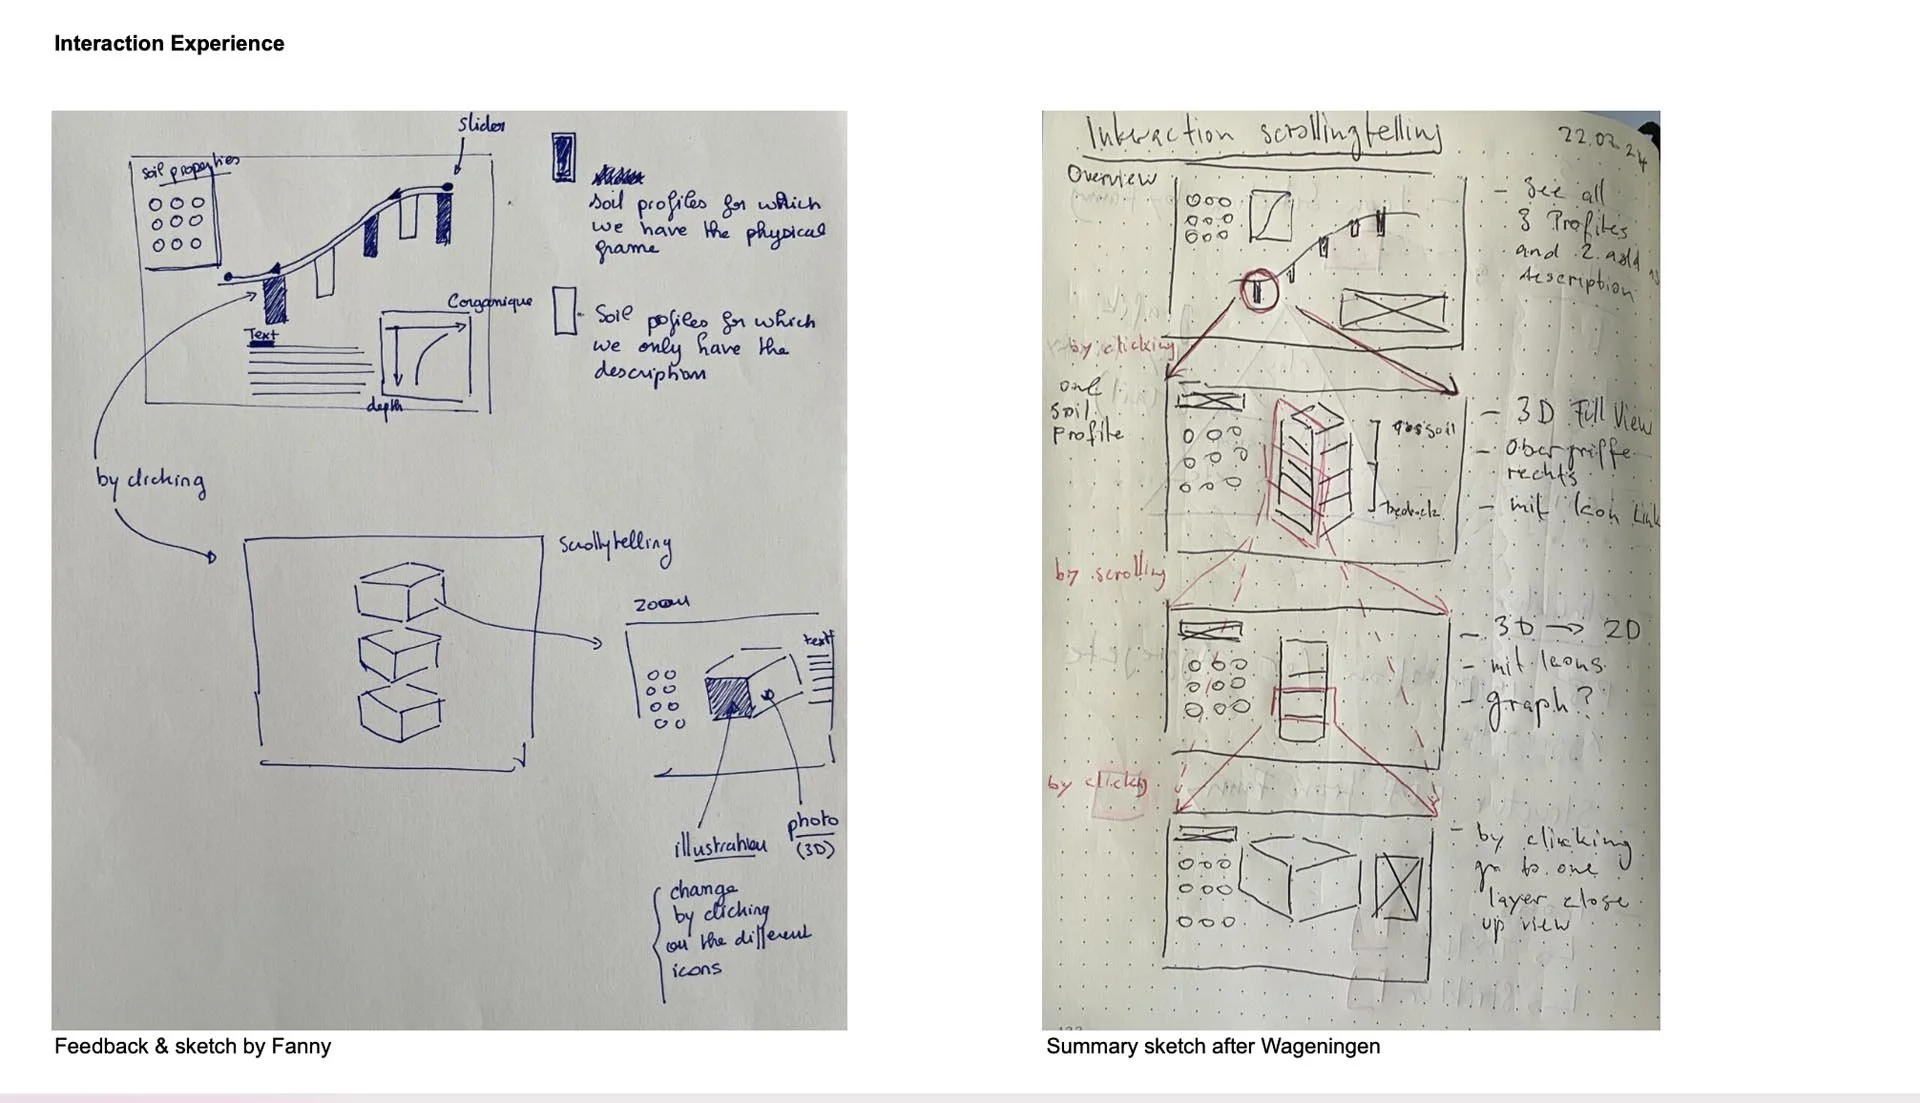 Interaction Experience
slider
soil properties
soil profiles for which
we have the physical
frame
Corganique
Soil pofiles for which
we only have the
description
Text
depth
by clicking
Scrollytelling
zoom
text
illustration
photo
(3D)
change
by clicking
on the different
icons
Feedback & sketch by Fanny
Interaction scrollingtelling
22.02.24
Overview
- See all
3 Profiles
and 2 add
description
by clicking
one
soil
profile
- 3D Full View
bedrock
rechts
- mit Icon Link
by scrolling
- 3D → 2D
- mit Icons
- graph?
by clicking
- by clicking
go to one
layer close
up view
Summary sketch after Wageningen